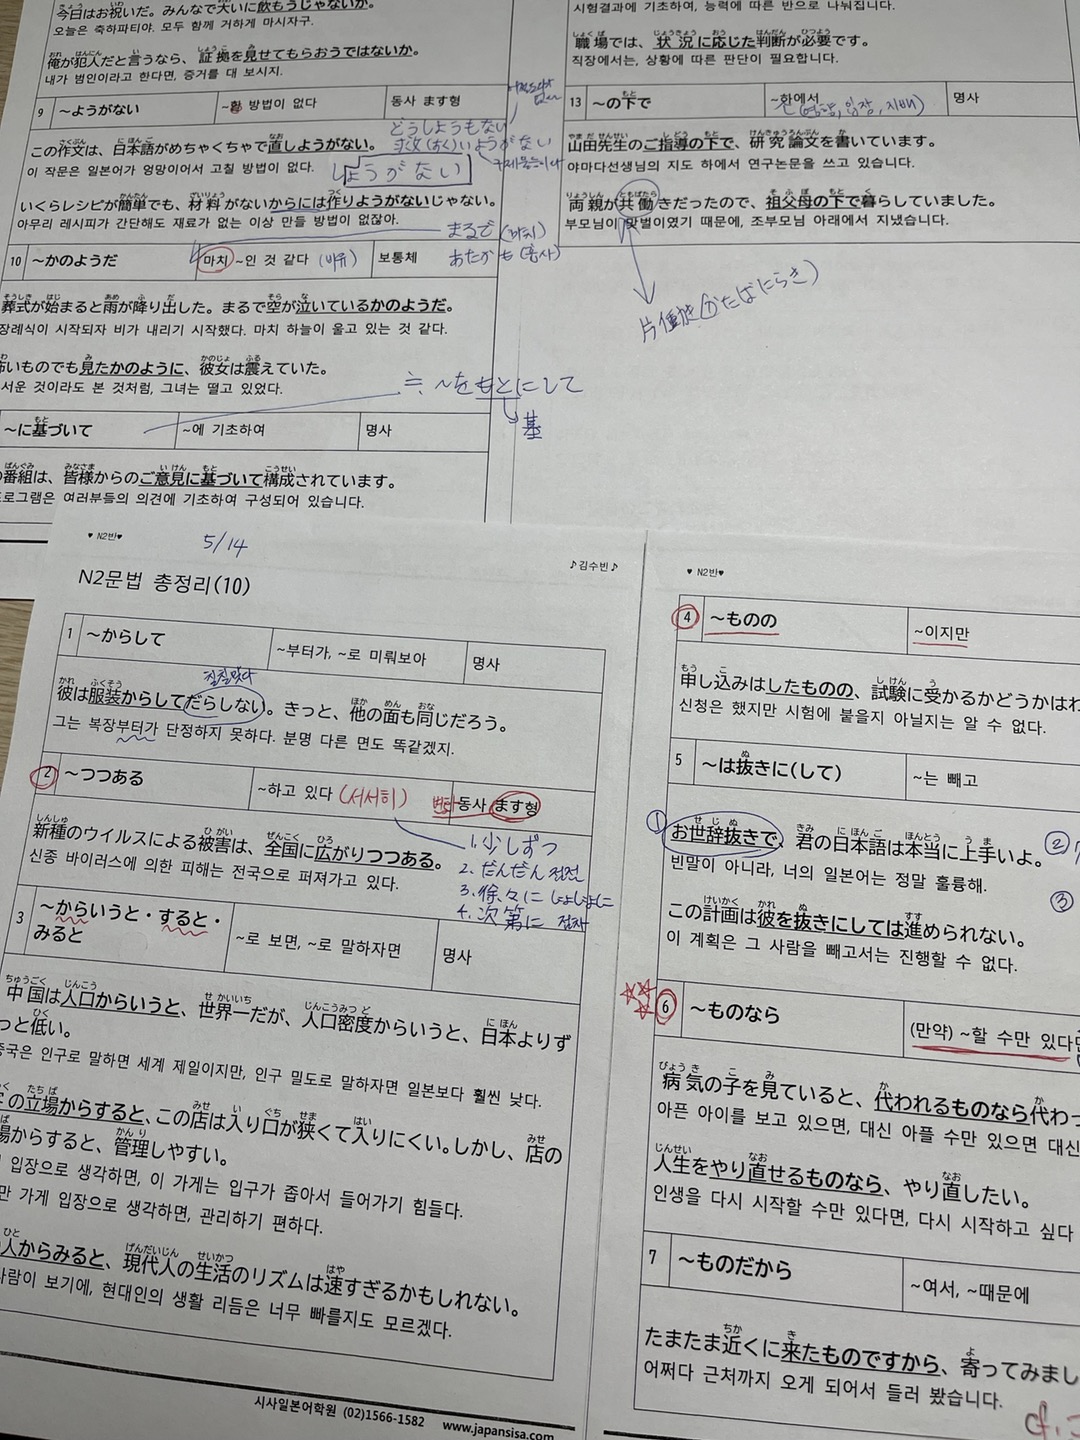 今日はお祝いだ。みんなで大いに飲もうじゃないか。
오늘은 축하파티야. 모두 함께 거하게 마시자구.
俺が犯人だと言うなら、証拠を見せてもらおうではないか。
내가 범인이라고 한다면, 증거를 대 보시지.
9 ～ようがない ~할 방법이 없다 동사 ます형
どうしようもない
求(すく)いようがない
この作文は、日本語がめちゃくちゃで直しようがない。
이 작문은 일본어가 엉망이어서 고칠 방법이 없다.
しょうがない
いくらレシピが簡単でも、材料がないからには作りようがないじゃない。
아무리 레시피가 간단해도 재료가 없는 이상 만들 방법이 없잖아.
まるで (마치)
10 ～かのようだ 마치 ~인 것 같다 (비유) 보통체
あたかも (흡사)
葬式が始まると雨が降り出した。まるで空が泣いているかのようだ。
장례식이 시작되자 비가 내리기 시작했다. 마치 하늘이 울고 있는 것 같다.
いものでも見たかのように、彼女は震えていた。
서운 것이라도 본 것처럼, 그녀는 떨고 있었다.
≒ ～をもとにして
基
～に基づいて ~에 기초하여 명사
番組は、皆様からのご意見に基づいて構成されています。
로그램은 여러분들의 의견에 기초하여 구성되어 있습니다.
시험결과에 기초하여, 능력에 따른 반으로 나눠집니다.
職場では、状況に応じた判断が必要です。
직장에서는, 상황에 따른 판단이 필요합니다.
13 ～の下で ~하에서 명사
(영향, 입장, 지배)
山田先生のご指導の下で、研究論文を書いています。
야마다선생님의 지도 하에서 연구논문을 쓰고 있습니다.
両親が共働きだったので、祖父母の下で暮らしていました。
부모님이 맞벌이였기 때문에, 조부모님 아래에서 지냈습니다.
♥ N2반♥
5/14
♪김수빈♪
N2문법 총정리(10)
1 ～からして ~부터가, ~로 미뤄보아 명사
칠칠맞다
彼は服装からしてだらしない。きっと、他の面も同じだろう。
그는 복장부터가 단정하지 못하다. 분명 다른 면도 똑같겠지.
2 ～つつある ~하고 있다 (서서히) 동사 ます형
新種のウイルスによる被害は、全国に広がりつつある。
신종 바이러스에 의한 피해는 전국으로 퍼져가고 있다.
1. 少しずつ
2. だんだん 점점
3. 徐々に じょじょに
4. 次第に 점차
3 ～からいうと・すると・みると ~로 보면, ~로 말하자면 명사
中国は人口からいうと、世界一だが、人口密度からいうと、日本よりず
っと低い。
중국은 인구로 말하면 세계 제일이지만, 인구 밀도로 말하자면 일본보다 훨씬 낮다.
の立場からすると、この店は入り口が狭くて入りにくい。しかし、店の
場からすると、管理しやすい。
입장으로 생각하면, 이 가게는 입구가 좁아서 들어가기 힘들다.
만 가게 입장으로 생각하면, 관리하기 편하다.
人からみると、現代人の生活のリズムは速すぎるかもしれない。
사람이 보기에, 현대인의 생활 리듬은 너무 빠를지도 모르겠다.
시사일본어학원 (02)1566-1582 www.japansisa.com
♥ N2반♥
4 ～ものの ~이지만
申し込みはしたものの、試験に受かるかどうかはわ
신청은 했지만 시험에 붙을지 아닐지는 알 수 없다.
5 ～は抜きに(して) ~는 빼고
① お世辞抜きで、君の日本語は本当に上手いよ。
②
빈말이 아니라, 너의 일본어는 정말 훌륭해.
③
この計画は彼を抜きにしては進められない。
이 계획은 그 사람을 빼고서는 진행할 수 없다.
6 ～ものなら (만약) ~할 수만 있다면
病気の子を見ていると、代われるものなら代わっ
아픈 아이를 보고 있으면, 대신 아플 수만 있으면 대신
人生をやり直せるものなら、やり直したい。
인생을 다시 시작할 수만 있다면, 다시 시작하고 싶다
7 ～ものだから ~여서, ~때문에
たまたま近くに来たものですから、寄ってみまし
어쩌다 근처까지 오게 되어서 들러 봤습니다.
cf.